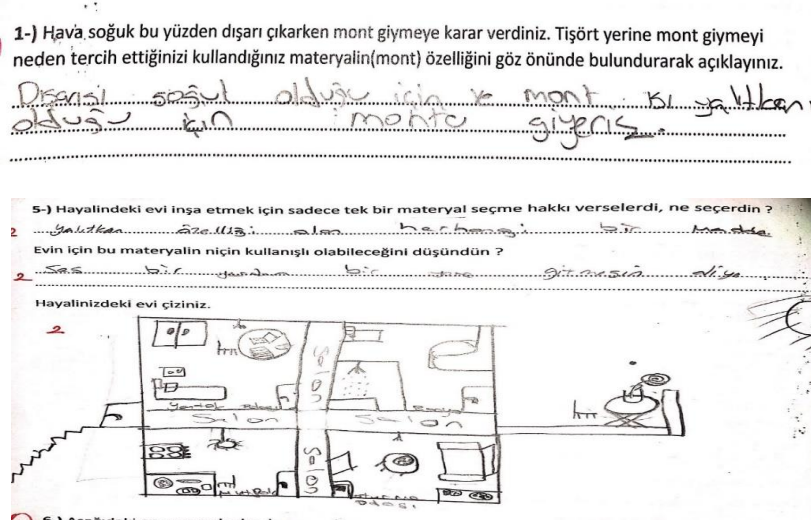 1-) Hava soğuk bu yüzden dışarı çıkarken mont giymeye karar verdiniz. Tişört yerine mont giymeyi
neden tercih ettiğinizi kullandığınız materyalin(mont) özelliğini göz önünde bulundurarak açıklayınız.
Dışarısı soğuk olduğu için ve mont ısı yalıtkan
olduğu için montu giyeriz.
5-) Hayalindeki evi inşa etmek için sadece tek bir materyal seçme hakkı verselerdi, ne seçerdin ?
2 Yalıtkan özelliği olan herhangi bir madde
Evin için bu materyalin niçin kullanışlı olabileceğini düşündün ?
2 Ses bir yandan bir yana gitmesin diye
Hayalinizdeki evi çiziniz.
2
Salon Salon
Odası